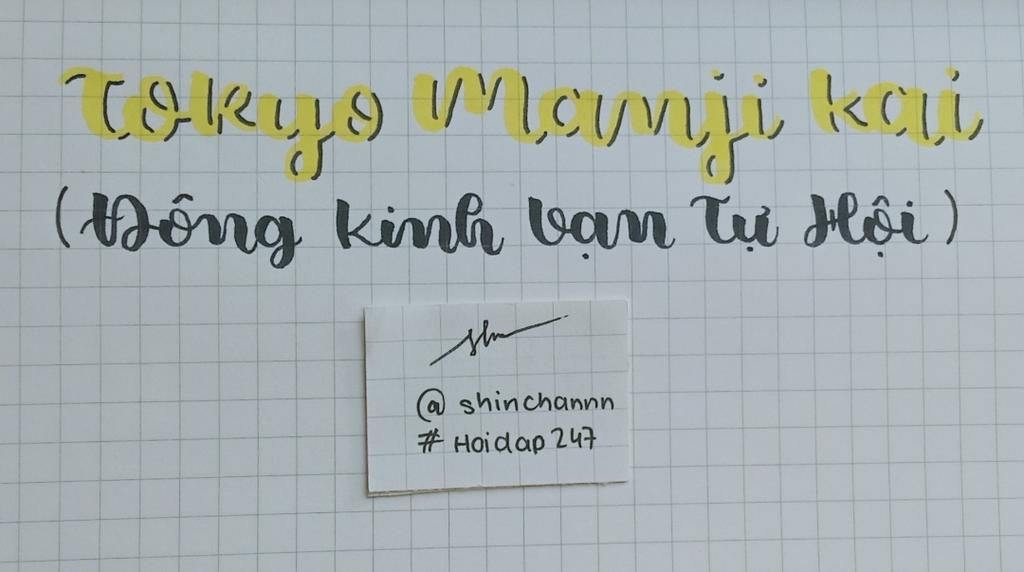 Tokyo Manji Kai
(Đông Kinh Vạn Tự Hội)
shn
@ shinchannn
# Hoidap 247